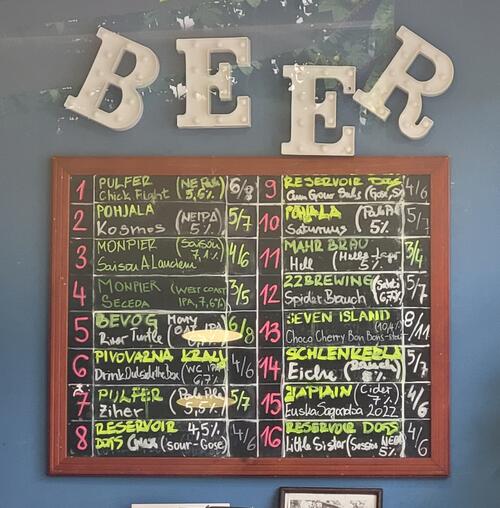 BEER
1 PULFER (NE Pale) 6/8
Chick Fight 5,6%
2 POHJALA (NEIPA) 5/7
Kosmos 5%
3 MONPIER (Saison) 4/6
Saison A Lancien 7,1%
4 MONPIER (WEST COAST 3/5
SECEDA IPA, 7,6%)
5 BEVOG 6/8
River Turtle
6 PIVOVARNA KRALJ 4/6
Drink Outside the Box (WC IPA 6,7%
7 PULFER 5/7
Ziher 5,5%
8 RESERVOIR 4,5% 4/6
DOGS (sour-Gose)
9 RESERVOIR DOGS 4/6
(Gose,
10 POHJALA 5/7
Saturnus 5%
11 MAHR BRÄU 3/4
Hell 5%
12 22BREWING 5/7
Spider Brauch 6,7%
13 SEVEN ISLAND 8/11
Choco Cherry Bon Bons (10,4%)
14 SCHLENKERLA 5/7
Eiche 8%
15 Cider 4/6
Euska Sagardoa 2022 7%
16 RESERVOIR DOGS 4/6
Little Sister (Session NEIPA 5%